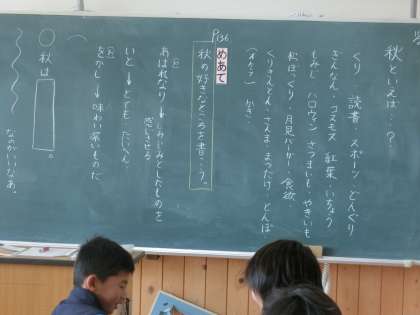 秋といえば…?
くり 読書 スポーツ どんぐり
ぎんなん コスモス 紅葉 いちょう
もみじ ハロウィン さつまいも やきいも
松ぼっくり 月見バーガー 食欲
くりきんとん さんま まつたけ とんぼ
かき
P86
めあて
秋の好きなところを書こう。
あはれなり→しみじみとしたものを
感じさせる
いと→とても たいへん
をかし→味わい深いものだ
秋は 。